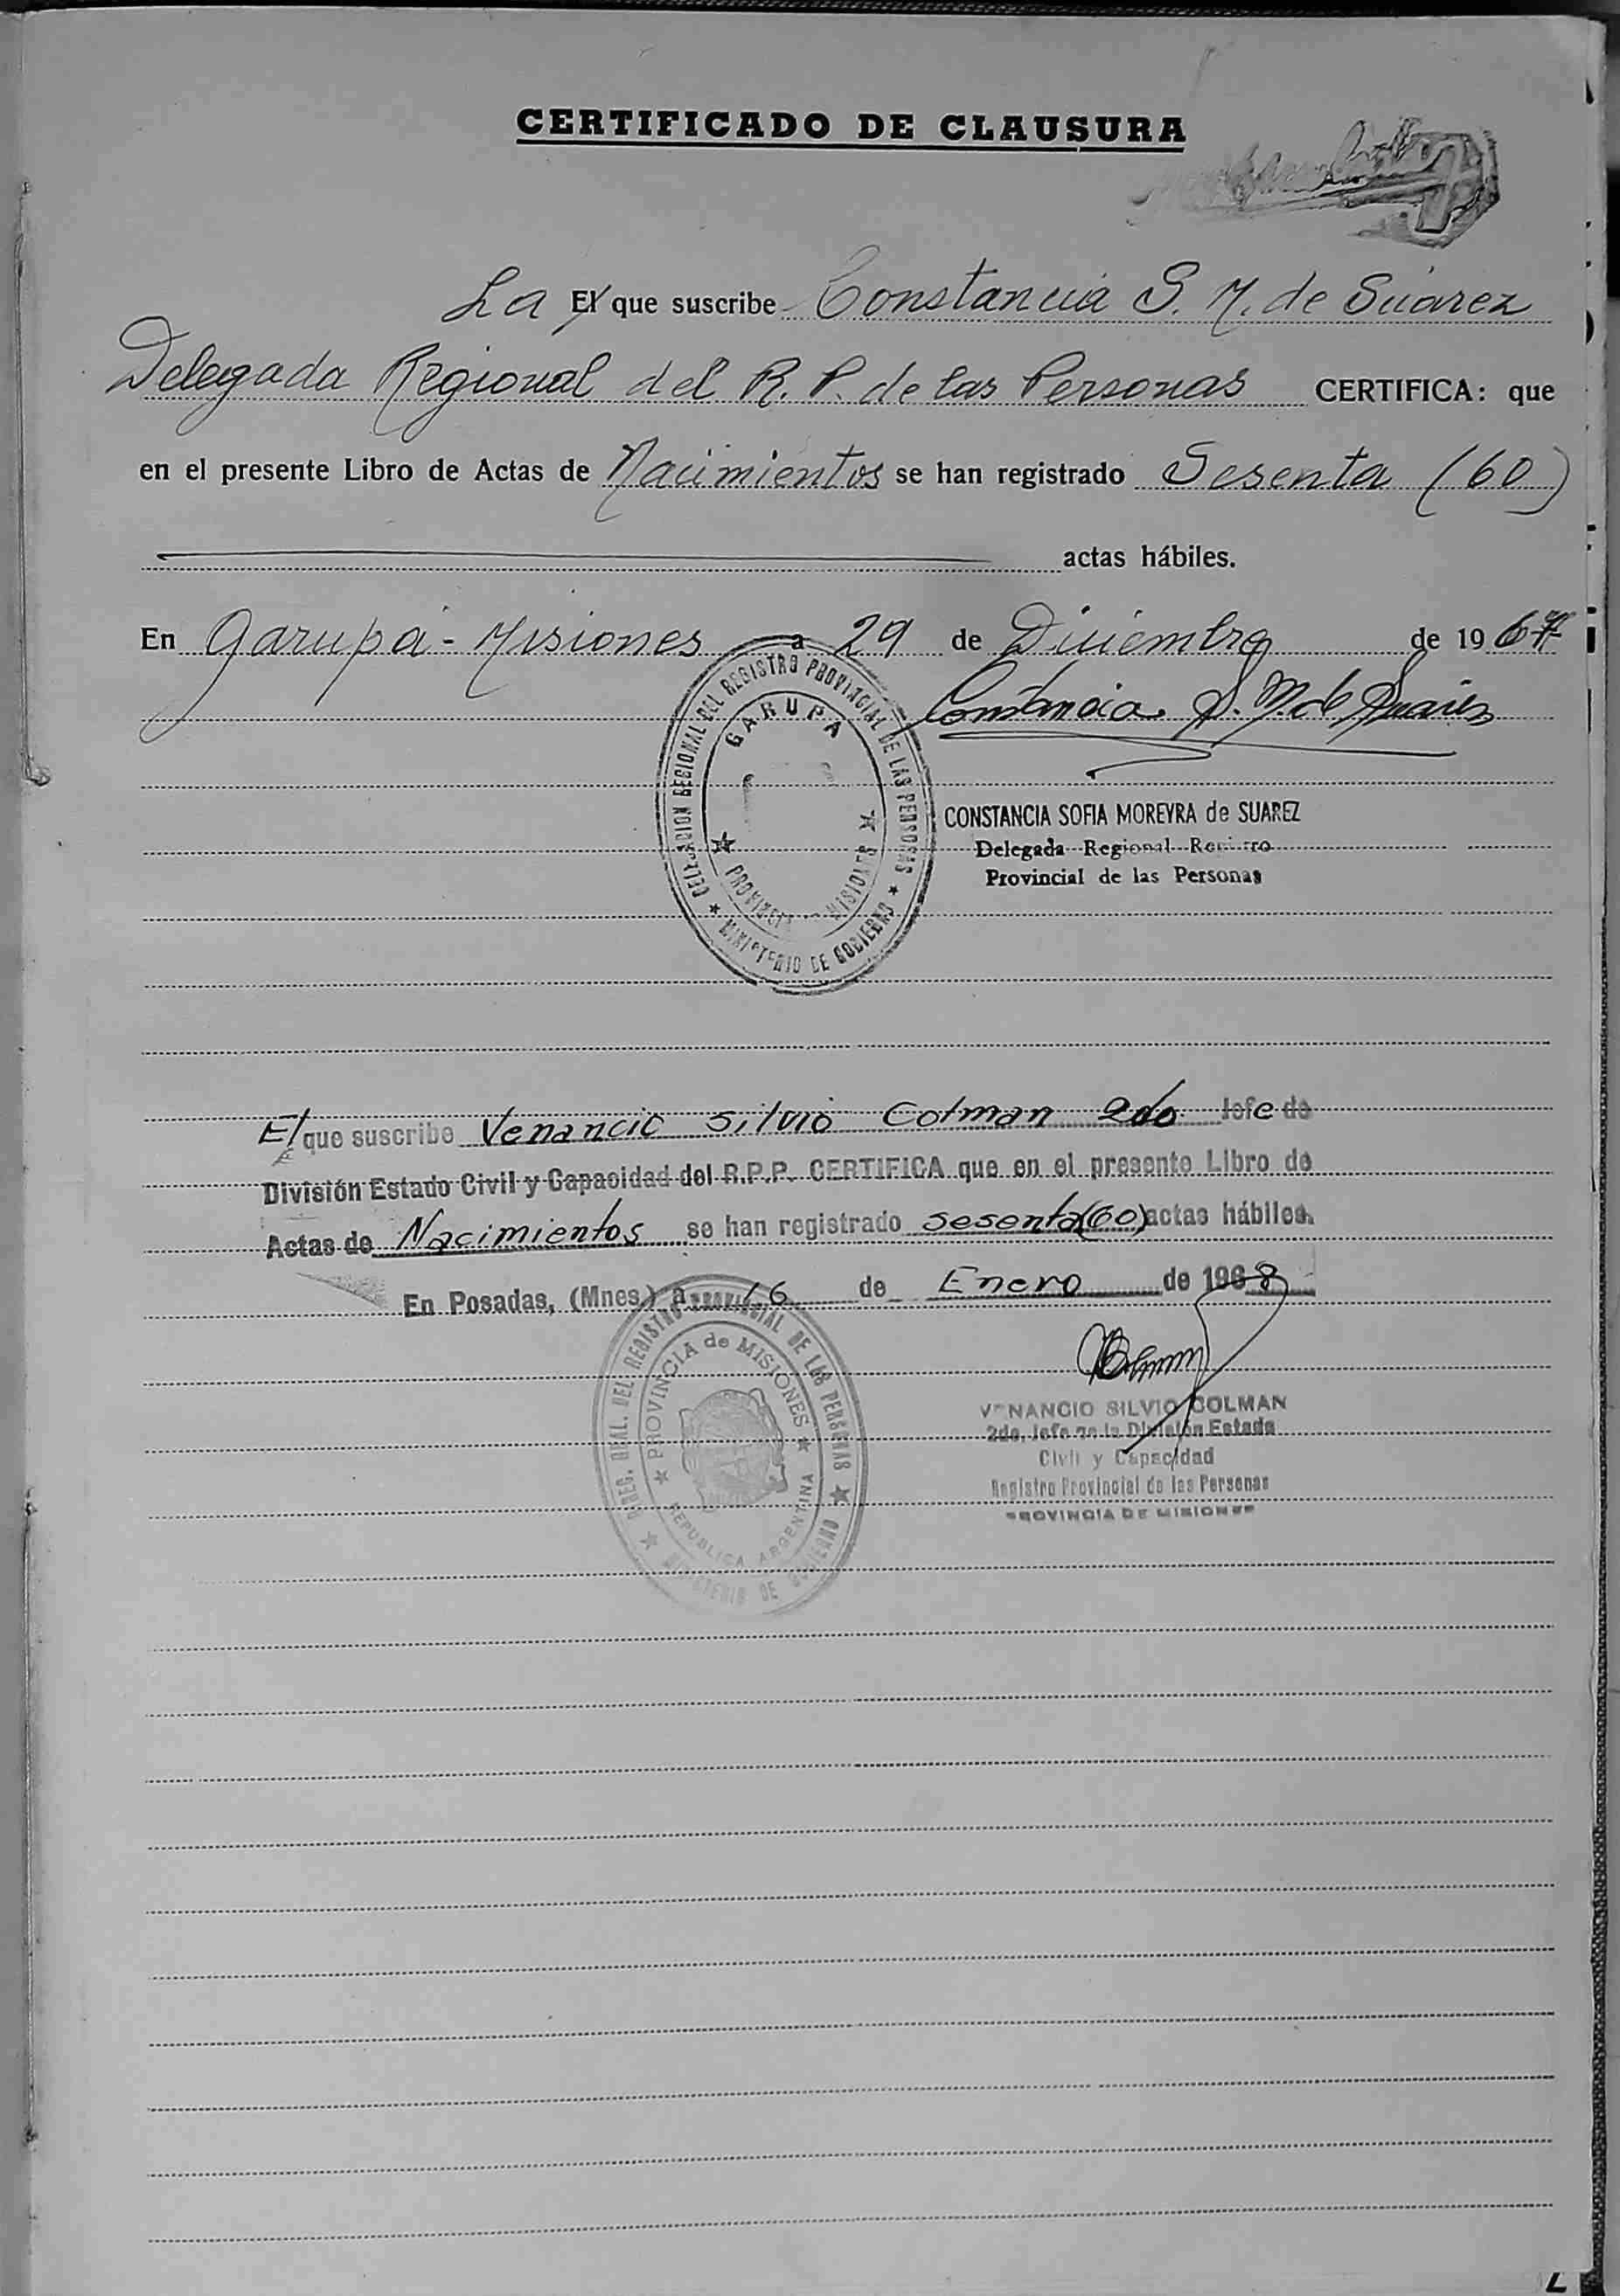 CERTIFICADO DE CLAUSURA
La El que suscribe Constancia S. M. de Suárez
Delegada Regional del R. P. de las Personas CERTIFICA: que
en el presente Libro de Actas de Nacimientos se han registrado Sesenta (60)
actas hábiles.
En Garupá - Misiones a 29 de Diciembre de 1967
Constancia S. M. de Suárez
DELEGACION REGIONAL DEL REGISTRO PROVINCIAL DE LAS PERSONAS
GARUPA
PROVINCIA MISIONES
MINISTERIO DE GOBIERNO
CONSTANCIA SOFIA MOREYRA de SUAREZ
Delegada Regional Registro
Provincial de las Personas
El que suscribe Venancio Silvio Colman 2do Jefe de
División Estado Civil y Capacidad del R.P.P. CERTIFICA que en el presente Libro de
Actas de Nacimientos se han registrado sesenta (60) actas hábiles.
En Posadas, (Mnes.) a 16 de Enero de 1968
GRAL. DEL REGISTRO PROVINCIAL DE LAS PERSONAS
PROVINCIA de MISIONES
REPUBLICA ARGENTINA
MINISTERIO DE GOBIERNO
VENANCIO SILVIO COLMAN
2do. Jefe de la División Estado
Civil y Capacidad
Registro Provincial de las Personas
PROVINCIA DE MISIONES